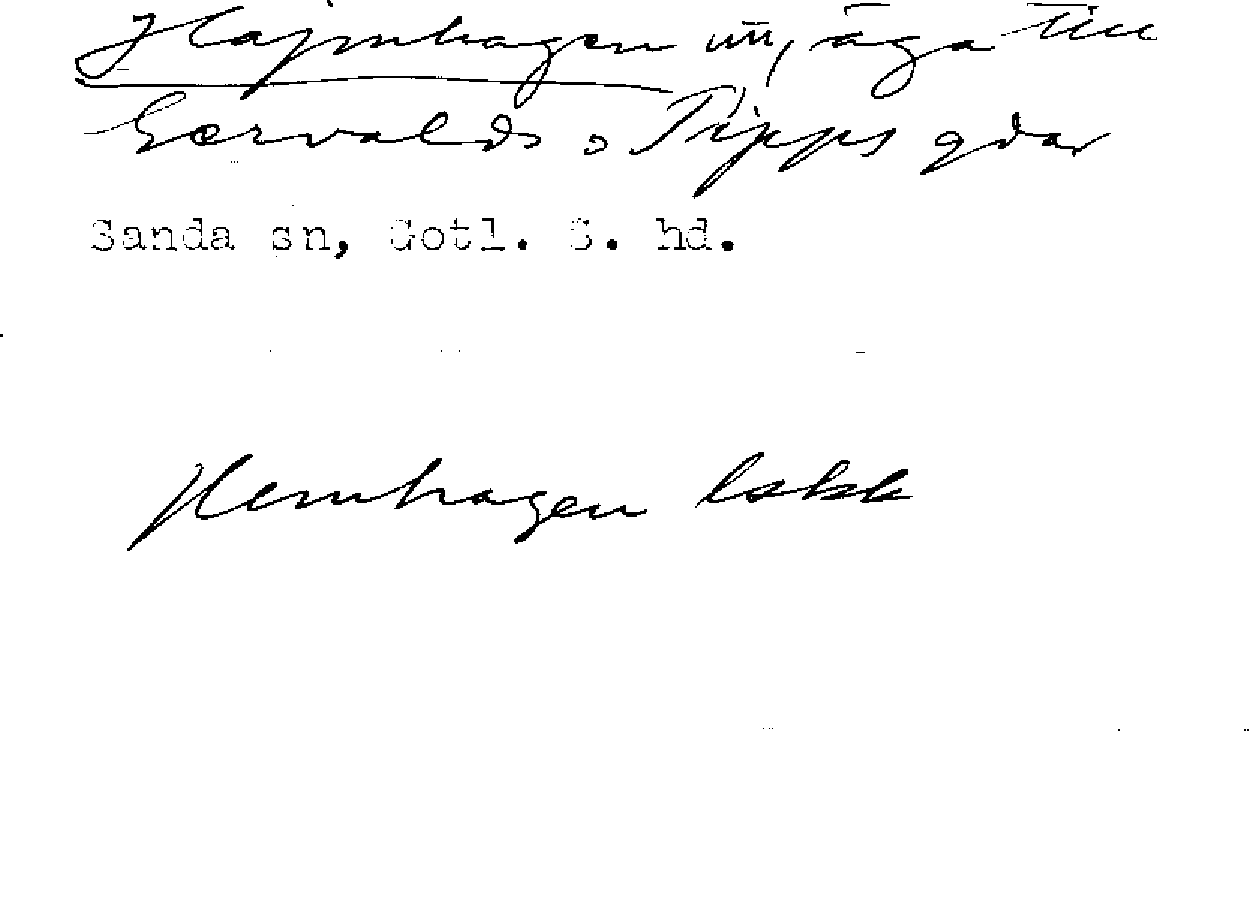 Hajmhagen äga till
Gervalds o Pipps gdar
Sanda sn, Gotl. S. hd.
Hemhagen